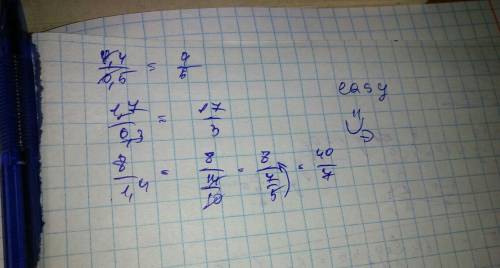 1,7/0,3 = 17/3
8/1,4 = 8/(14/10) = 8/(7/5) = 40/7
easy